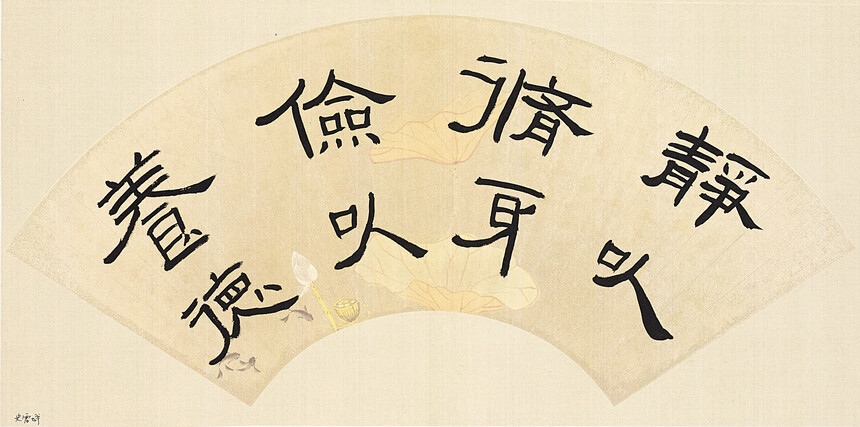 靜以
脩身
儉以
養德